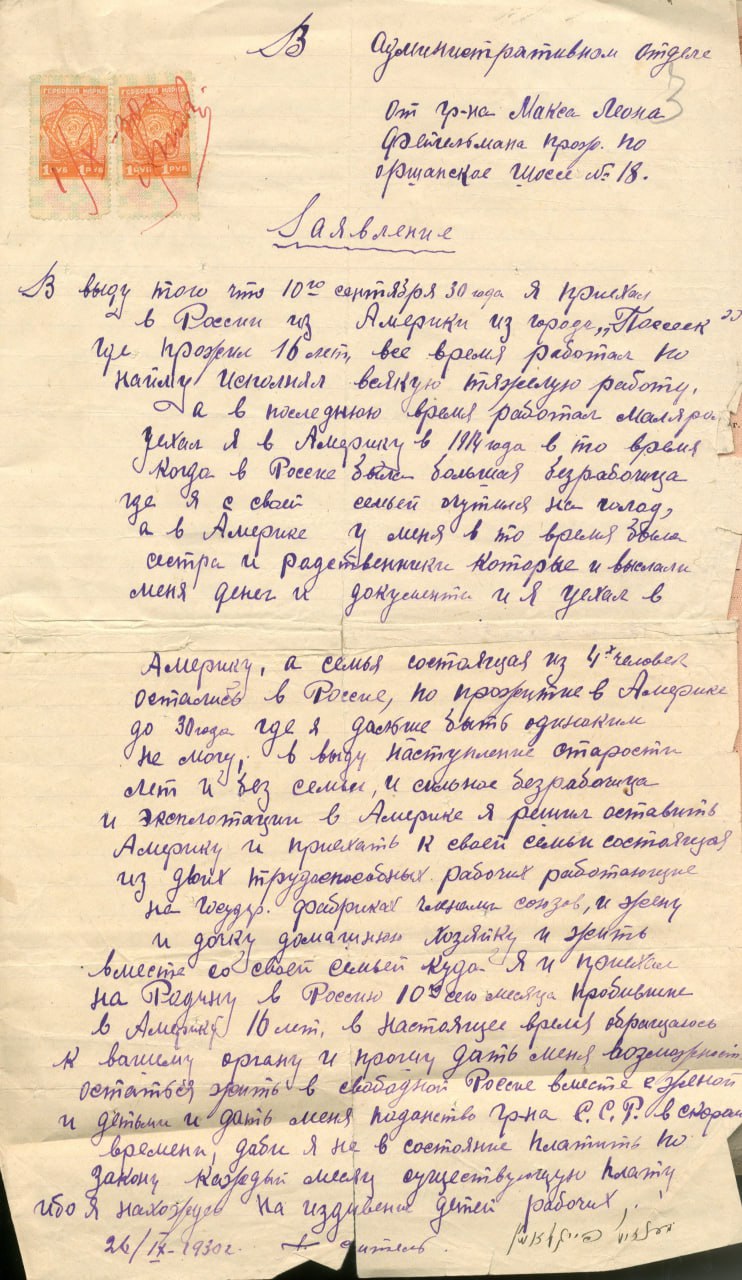 В Административном отделе
ГЕРБОВАЯ МАРКА ГЕРБОВАЯ МАРКА
1 РУБ 1 РУБ 1 РУБ 1 РУБ
3
От гр-на Макса Леона
Фейгельмана прож. по
оршанское шоссе № 18.
Заявление
В выду того что 10го сентября 30 года я приехал
в России из Америки из города
где прожил 16 лет, все время работал по
найму исполнял всякую тяжелую работу,
а в последнюю время работал маляро
уехал я в Америку в 1914 года в то время
когда в Россие была большая безработица
где я с своей семьей на голод,
а в Америке у меня в то время была
сестра и радственники которые и выслали
меня денег и документи и я уехал в
Америку, а семья состоящая из 4х человек
остались в Россие, по прожитие в Америке
до 30 года где я дальше быть одиноким
не могу, в выду наступление старости
лет и без семьи, и сильное безработица
и эксплотации в Америке я решил оставить
Америку и приехать к своей семьи состоящая
из двоих трудоспособных рабочих работающие
на госудр. фабриках членами союзов, и жену
и дочку домашнюю хозяйку и жить
вместе со своей семьей куда я и приехал
на Радину в Россию 10го сего месяца пробившие
в Америку 16 лет, в настоящее время обращаюсь
к вашему органу и прошу дать меня возможност
остаться жить в свободной Россие вместе с женой
и детьми и дать меня поданство гр-на С.С.Р. в скором
времени, даби я не в состояние платить по
закону каждый месяц существующую плату
ибо я нахожусь на издивение детей рабочих.
26/IX-1930г.